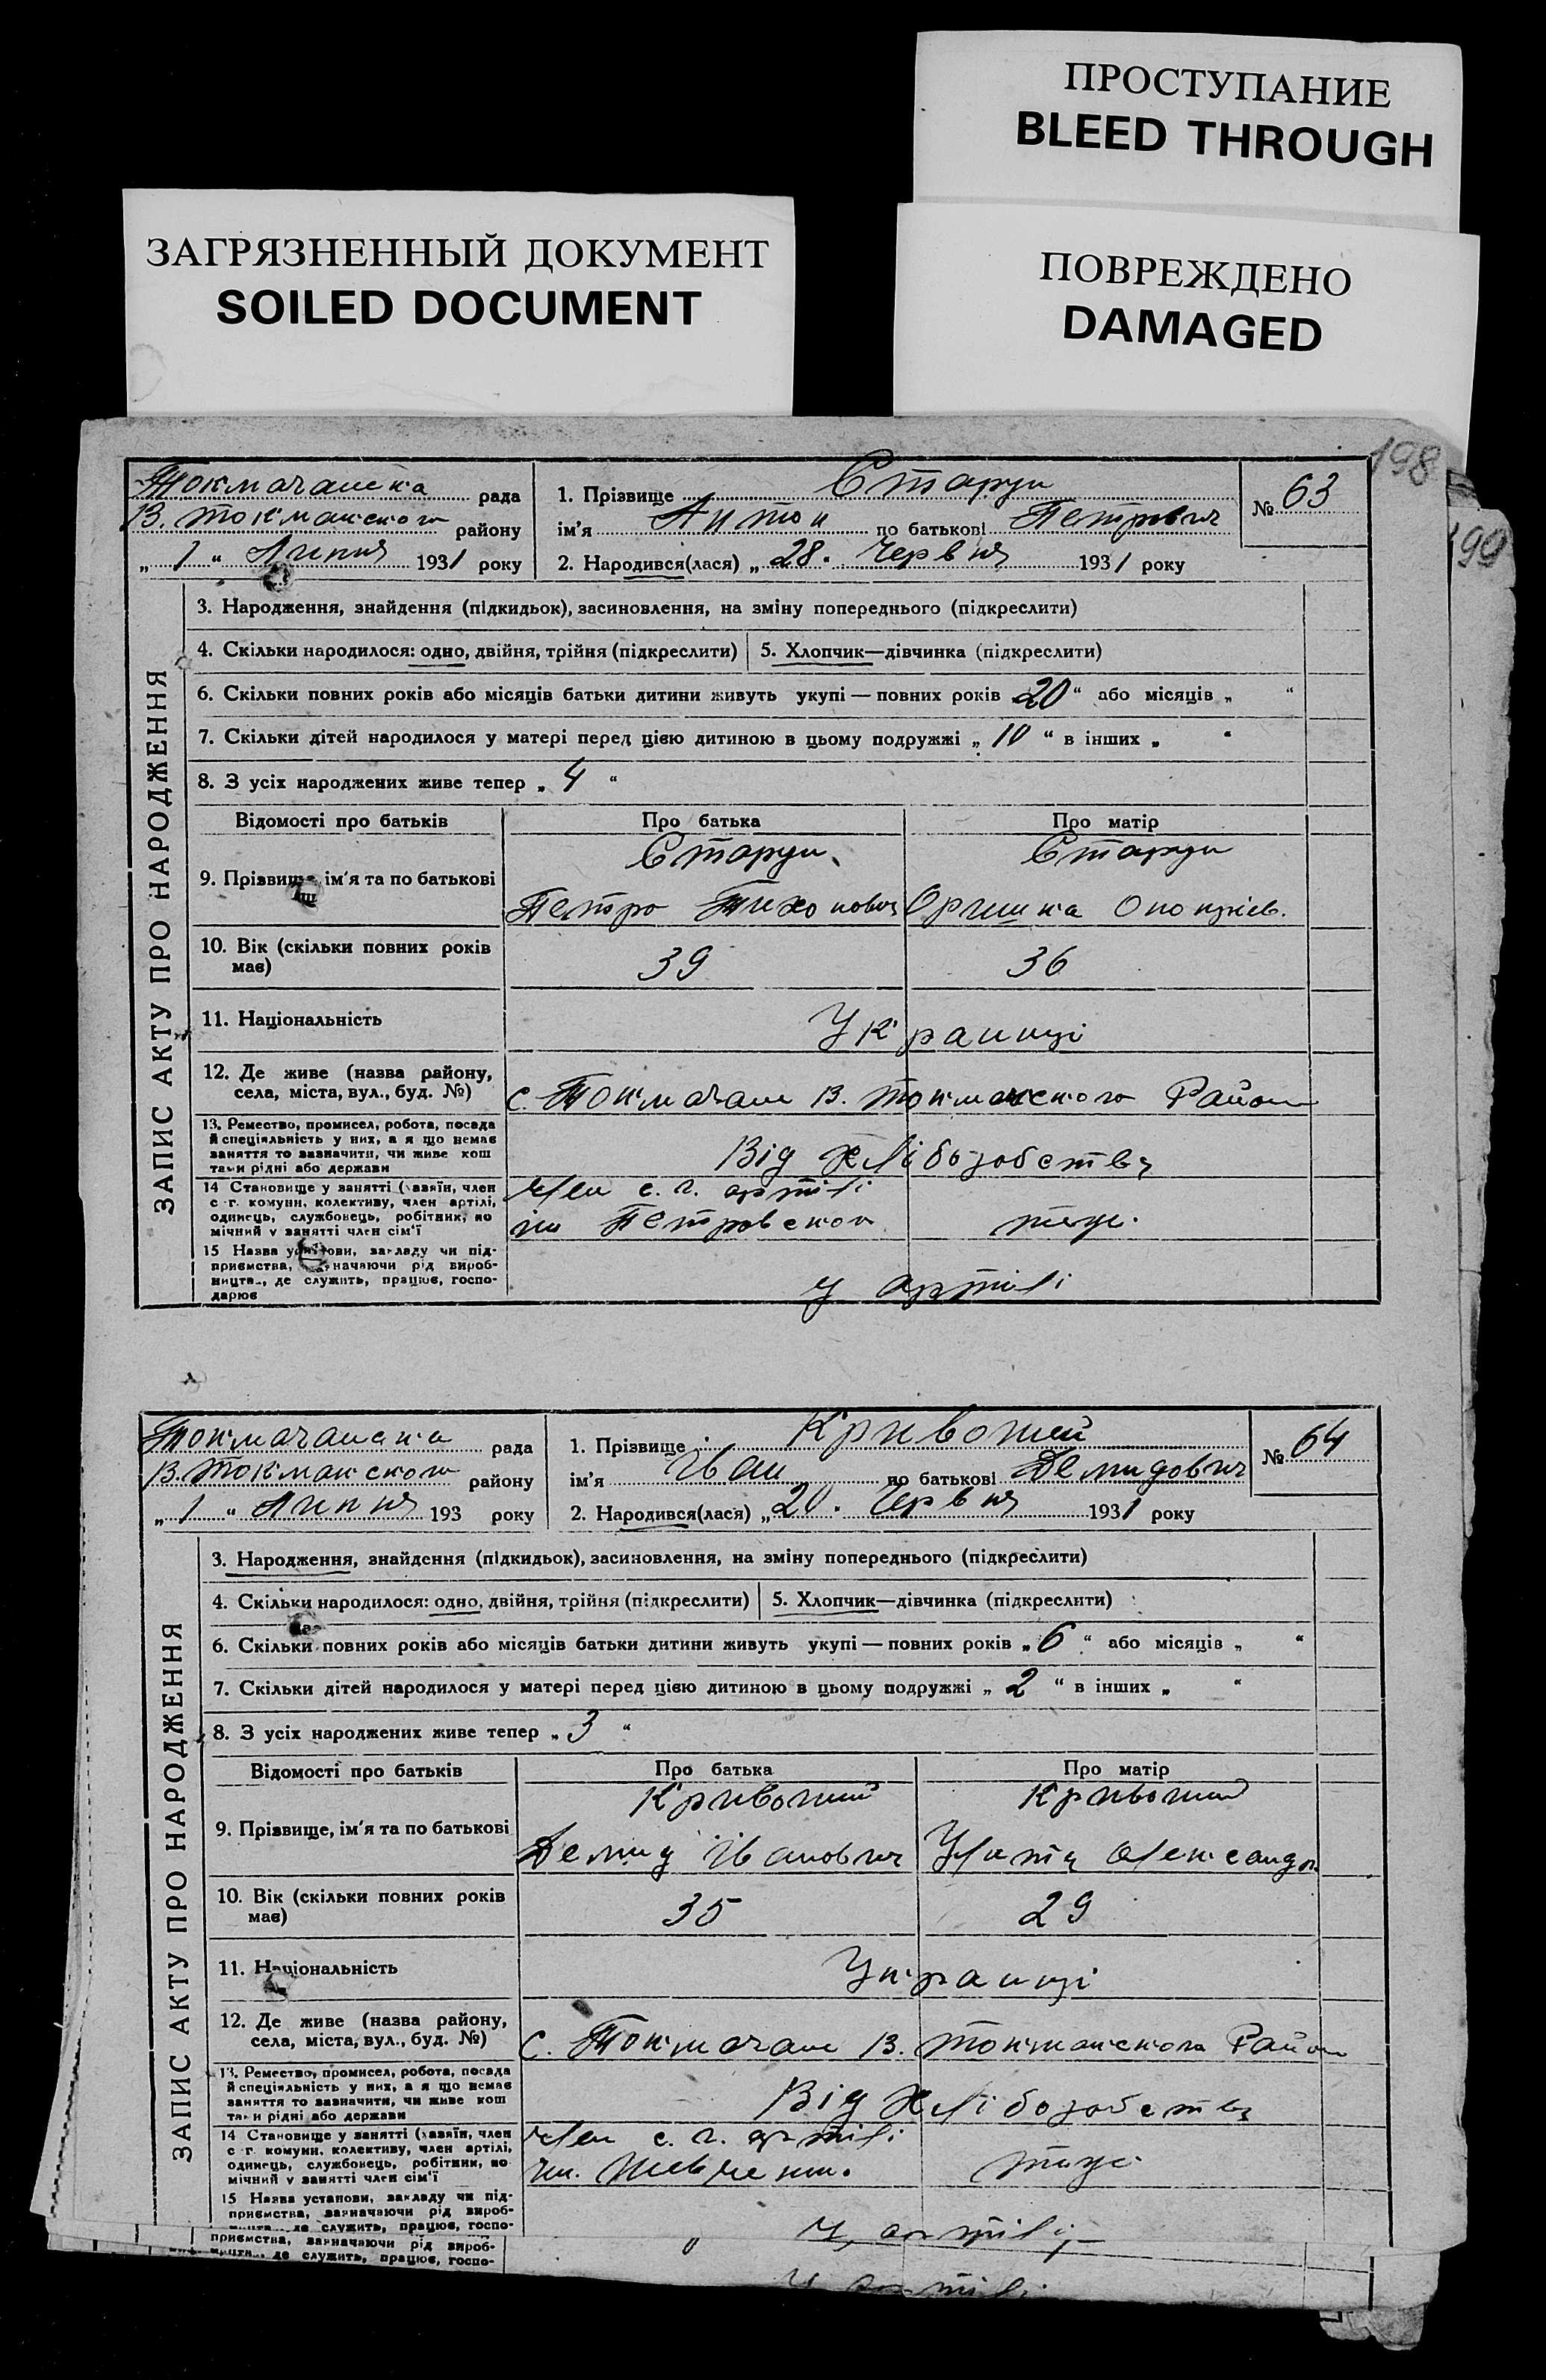 ПРОСТУПАНИЕ
BLEED THROUGH
ЗАГРЯЗНЕННЫЙ ДОКУМЕНТ
SOILED DOCUMENT
ПОВРЕЖДЕНО
DAMAGED
198
190
ЗАПИС АКТУ ПРО НАРОДЖЕННЯ
Токмачанська рада
В. Токмакского району
„ 1 “ Липня 1931 року
1. Прізвище Старун
№ 63
ім'я Антон по батькові Петрович
2. Народився(лася) „ 28 “ Червня 1931 року
3. Народження, знайдення (підкидьок), засиновлення, на зміну попереднього (підкреслити)
4. Скільки народилося: одно, двійня, трійня (підкреслити) 5. Хлопчик—дівчинка (підкреслити)
6. Скільки повних років або місяців батьки дитини живуть укупі — повних років „ 20 “ або місяців „ “
7. Скільки дітей народилося у матері перед цією дитиною в цьому подружжі „ 10 “ в інших „ “
8. З усіх народжених живе тепер „ 4 “
Відомості про батьків Про батька Про матір
9. Прізвище, ім'я та по батькові
Старун Старун
Петро Тихонович Оришка
10. Вік (скільки повних років має) 39 36
11. Національність Українці
12. Де живе (назва району, села, міста, вул., буд. №)
с. Токмачан В. Токмакского Район
13. Ремество, промисел, робота, посада
й спеціяльність у них, а я що немає
заняття то зазначити, чи живе кош
тами рідні або держави
Від хліборобства
14 Становище у занятті (хазяїн, член
с г. комуни, колективу, член артілі,
одинець, службовець, робітник, по
мічний у занятті член сім'ї
Член с. г. артілі
ім Петровского теж
15 Назва установи, закладу чи під-
приємства, зазначаючи рід вироб-
ництва, де служить, працює, госпо-
дарює
у артілі
ЗАПИС АКТУ ПРО НАРОДЖЕННЯ
Токмачанска рада
В. Токмакского району
„ 1 “ Липня 193 року
1. Прізвище Кривошей
№ 64
ім'я Іван по батькові Демидович
2. Народився(лася) „ 20 “ Червня 1931 року
3. Народження, знайдення (підкидьок), засиновлення, на зміну попереднього (підкреслити)
4. Скільки народилося: одно, двійня, трійня (підкреслити) 5. Хлопчик—дівчинка (підкреслити)
6. Скільки повних років або місяців батьки дитини живуть укупі — повних років „ 6 “ або місяців „ “
7. Скільки дітей народилося у матері перед цією дитиною в цьому подружжі „ 2 “ в інших „ “
8. З усіх народжених живе тепер „ 3 “
Відомості про батьків Про батька Про матір
9. Прізвище, ім'я та по батькові
Кривоший Кривоший
Демид Іванович Улита Олександр
10. Вік (скільки повних років має) 35 29
11. Національність Українці
12. Де живе (назва району, села, міста, вул., буд. №)
С. Токмачан В. Токмакского Район
13. Ремество, промисел, робота, посада
й спеціяльність у них, а я що немає
заняття то зазначити, чи живе кош
тами рідні або держави
Від хліборобства
14 Становище у занятті (хазяїн, член
с г. комуни, колективу, член артілі,
одинець, службовець, робітник, по
мічний у занятті член сім'ї
Член с. г. артілі
ім. Шевченк. теж
15 Назва установи, закладу чи під-
приємства, зазначаючи рід вироб-
де служить, працює, госпо-
у артілі
приємства, зазначаючи рід вироб-
де служить, працює, госпо-
у артілі